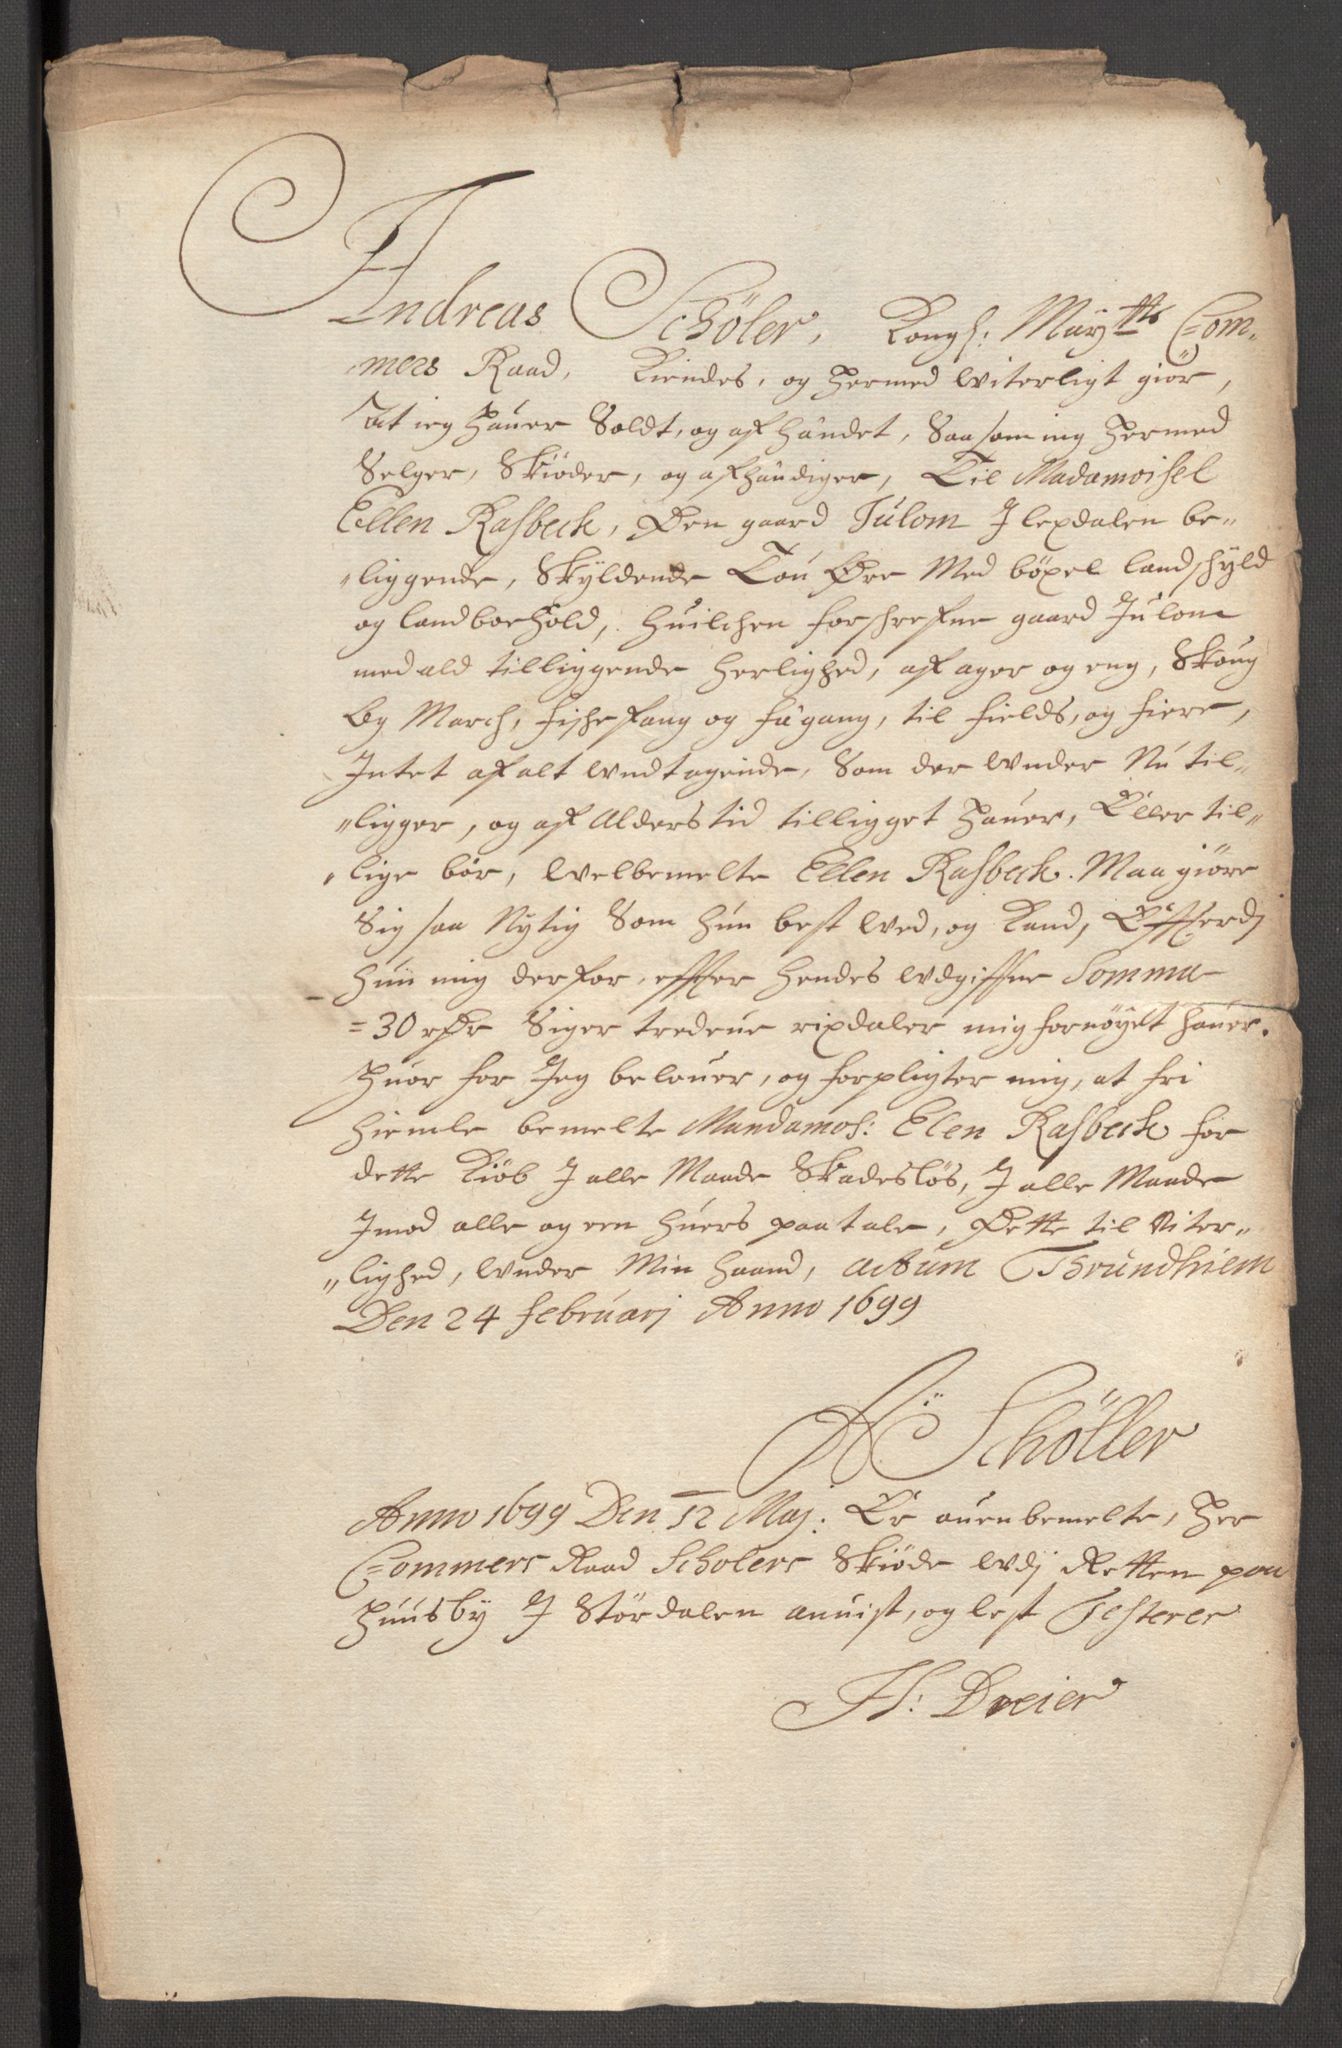 Andreas Schöler, Kongl: Maÿtts Com-
mers Raad, Kiendes, og hermed witterligt giör,
At ieg hauer Soldt, og afhändet, Saa som ieg hermed
Selger, Skiöder, og afhändiger, Til Madamoisel
Ellen Rasbech, Den gaard Julom J lexdalen be-
liggende, Skyldende Tou Öre Med böxel landschyld
og landboehold, huilchen forschrefne gaard Julom
med ald tilliggende herlighed, af ager og eng, Skoug
Og March, fische fang og fägang, til fields, og fiere,
Intet af alt wndtagende, Som der wnder Nu til-
ligger, og af Alders tid tilligget hauer, Eller til-
lige bör, welbemelte Ellen Rasbech. Maa giöre
Sig saa Nytig Som hun best wed, og Kand, Efferdj
hun mig derfor, effter hendes wdgiffne Somma
=30 rdr Siger tredeue rixdaler mig fornöyelt hauer.
huor for Jeg belouer, og forpligter mig, at fri
hiemle bemelte Mandamos: Elen Rasbech for
dette Kiöb J alle Maade Skadeslös, J alle Maade
Jmod alle og een huers paatale, Dette til Viter-
lighed, wnder Min haand, actum Thrundhiem
Den 24 februarj Anno 1699
A: Schöller
Anno 1699 Den 12 Maj: Er ouenbemelte, Her
Commers Raad Scholers Skiöde wdj Retten paa
huusby J Stördalen anuist, og lest Testerer
H: Dreier